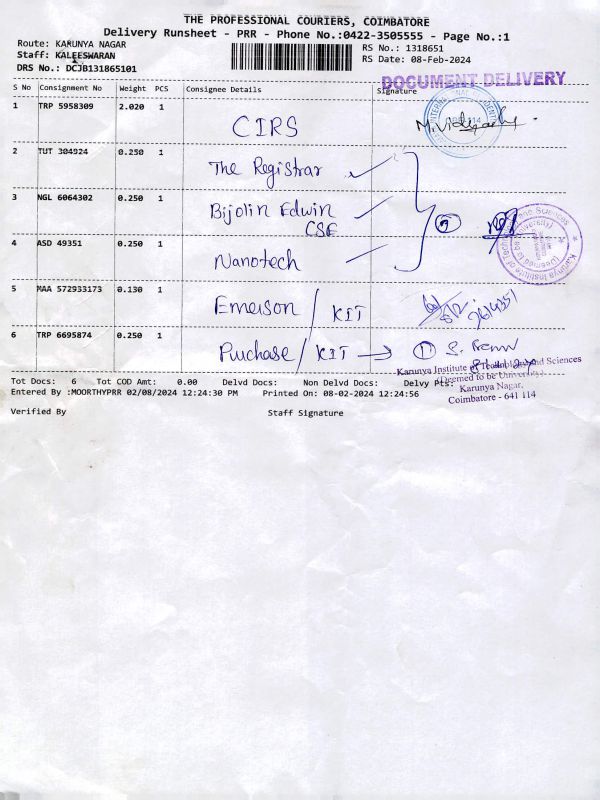 THE PROFESSIONAL COURIERS, COIMBATORE
Delivery Runsheet - PRR - Phone No.:0422-3505555 - Page No.:1
Route: KARUNYA NAGAR
RS No.: 1318651
Staff: KALEESWARAN
RS Date: 08-Feb-2024
DRS No.: DCJB131865101
DOCUMENT DELIVERY
S No Consignment No Weight PCS Consignee Details Signature
1 TRP 5958309 2.020 1 CIRS
2 TUT 304924 0.250 1 The Registrar
3 NGL 6064302 0.250 1 Bijolin Edwin
CSE
4 ASD 49351 0.250 1 Nanotech
5 MAA 572933173 0.130 1 Emerson / KIT
6 TRP 6695874 0.250 1 Puchase / KIT → 1
Karunya Institute of Technology and Sciences
(Deemed to be University)
Karunya Nagar,
Coimbatore - 641 114
Tot Docs: 6 Tot COD Amt: 0.00 Delvd Docs: Non Delvd Docs: Delvy Pcs:
Entered By :MOORTHYPRR 02/08/2024 12:24:30 PM Printed On: 08-02-2024 12:24:56
Verified By Staff Signature